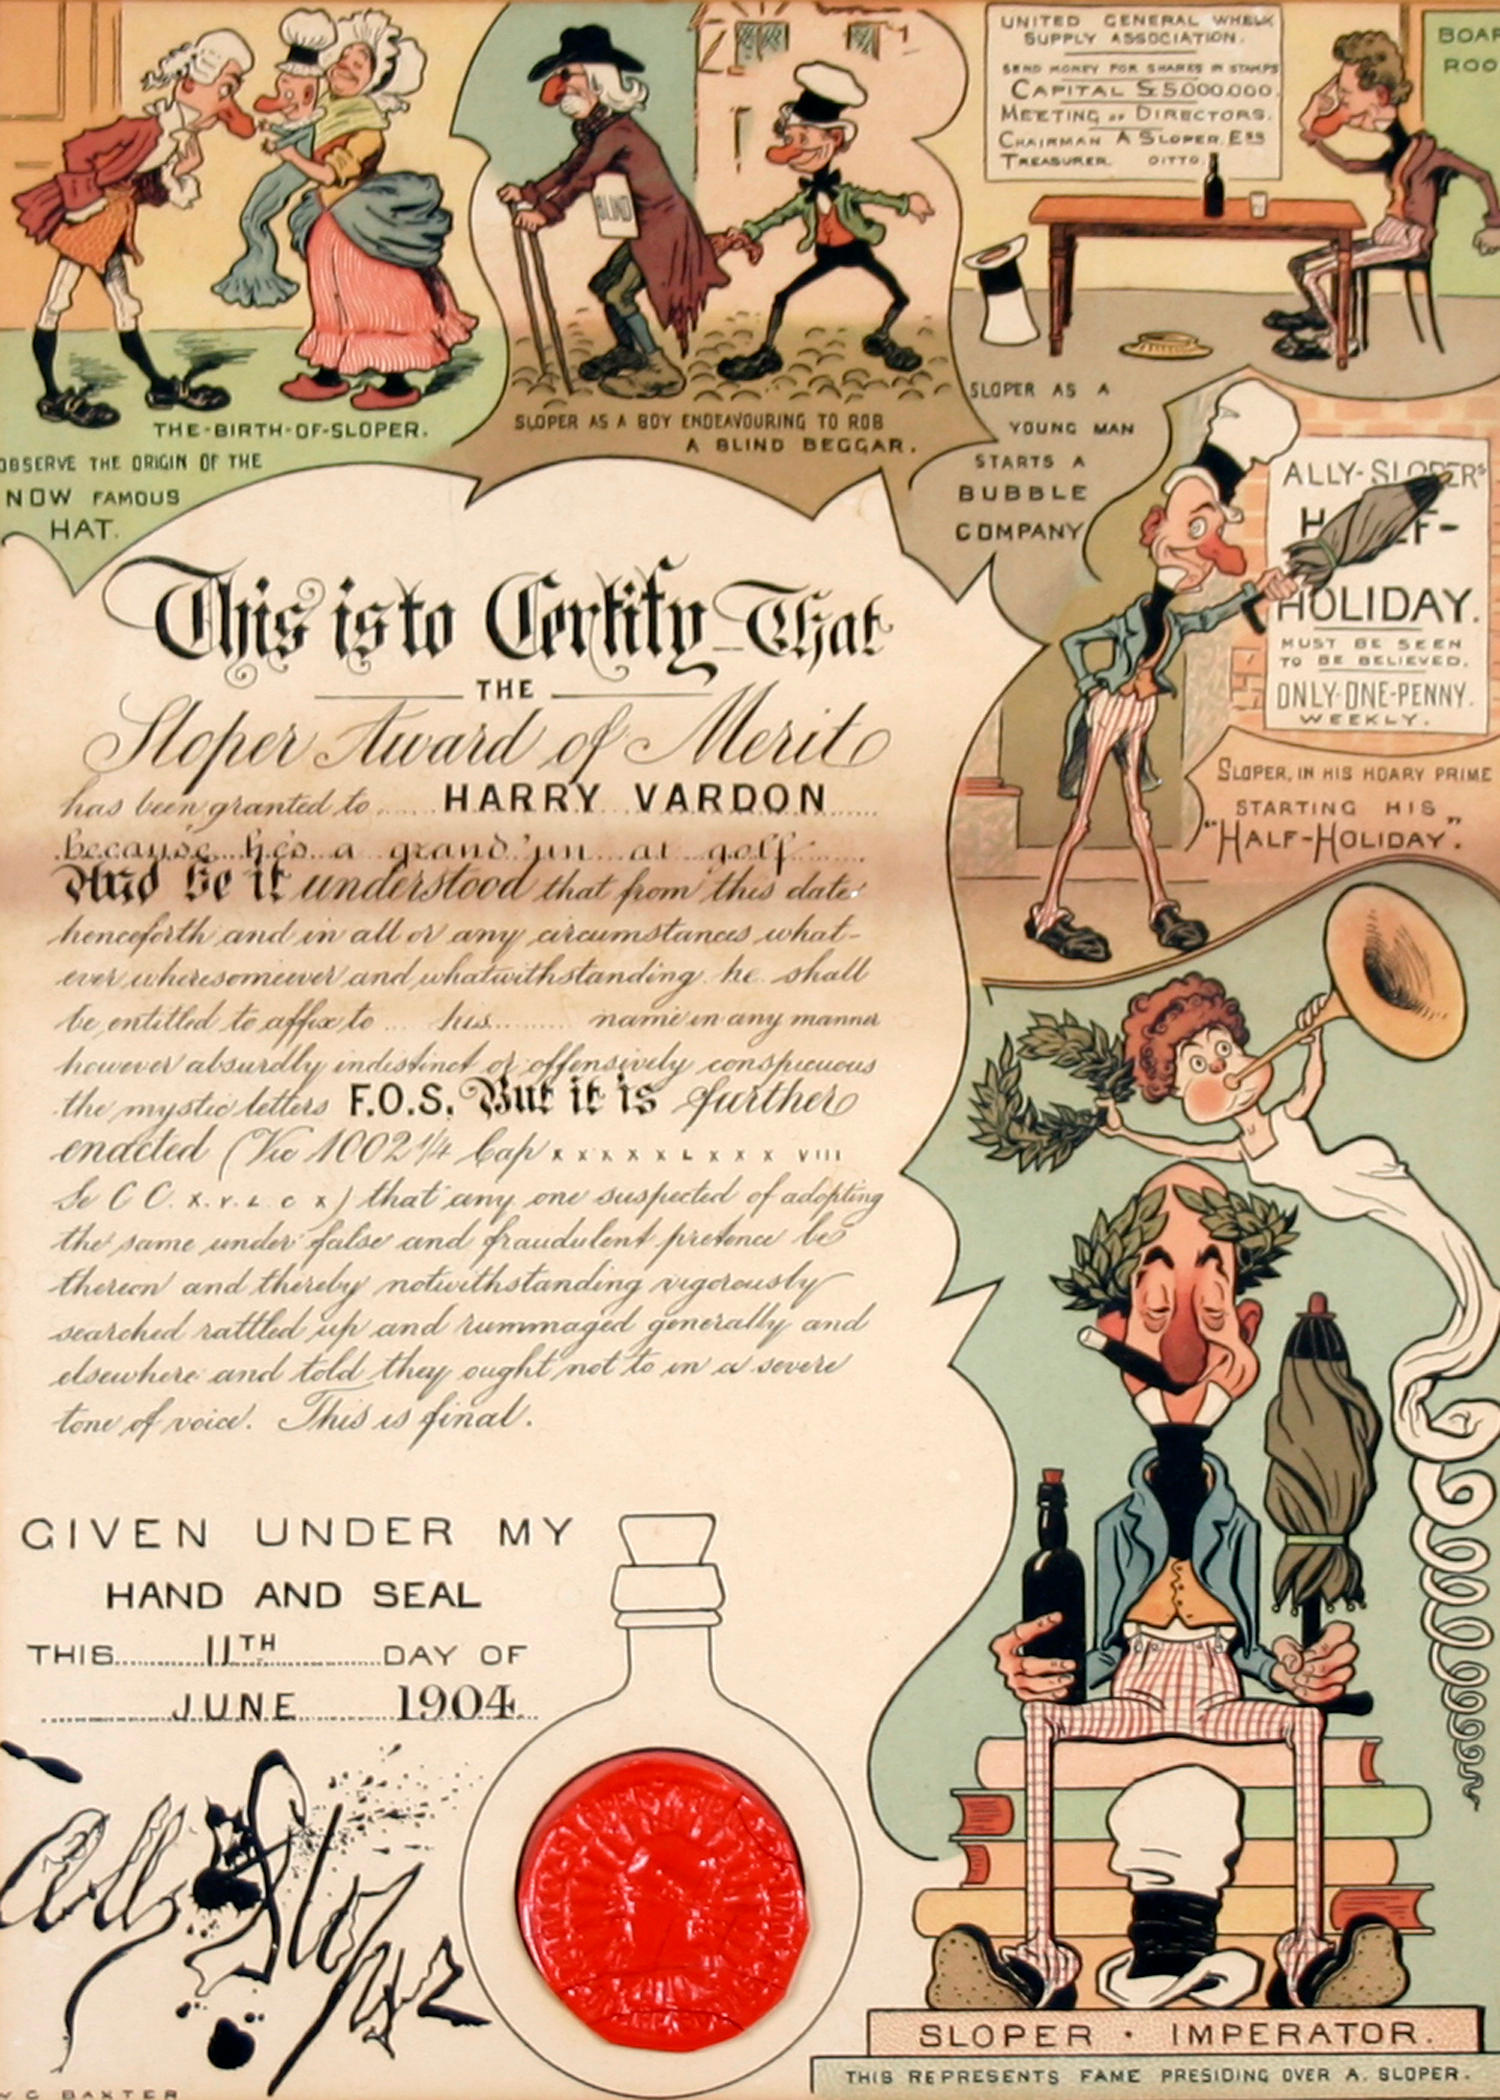 THE-BIRTH-OF-SLOPER.
OBSERVE THE ORIGIN OF THE
NOW FAMOUS
HAT.
BLIND
SLOPER AS A BOY ENDEAVOURING TO ROB
A BLIND BEGGAR.
UNITED GENERAL WHELK
SUPPLY ASSOCIATION.
SEND MONEY FOR SHARES IN STAMPS
CAPITAL £5,000,000.
MEETING OF DIRECTORS.
CHAIRMAN A SLOPER, ESQ
TREASURER. DITTO.
BOAR
ROO
SLOPER AS A
YOUNG MAN
STARTS A
BUBBLE
COMPANY
ALLY-SLOPER'S
HALF-
HOLIDAY.
MUST BE SEEN
TO BE BELIEVED.
ONLY-ONE-PENNY.
WEEKLY.
SLOPER, IN HIS HOARY PRIME
STARTING HIS
"HALF-HOLIDAY".
This is to Certify That
THE
Sloper Award of Merit
has been granted to HARRY VARDON
because he's a grand 'un at golf
And be it understood that from this date
henceforth and in all or any circumstances what-
ever wheresomeever and whatwithstanding he shall
be entitled to affix to his name in any manner
however absurdly indistinct or offensively conspicuous
the mystic letters F.O.S. But it is further
enacted (Vic 1002 1/4 Cap x x x x x L x x x VIII
Se C C. x. v. L. c x) that any one suspected of adopting
the same under false and fraudulent pretence be
thereon and thereby notwithstanding vigorously
searched rattled up and rummaged generally and
elsewhere and told they ought not to in a severe
tone of voice. This is final.
GIVEN UNDER MY
HAND AND SEAL
THIS 11TH DAY OF
JUNE 1904.
Ally Sloper
W. G BAXTER
SLOPER · IMPERATOR.
THIS REPRESENTS FAME PRESIDING OVER A. SLOPER.